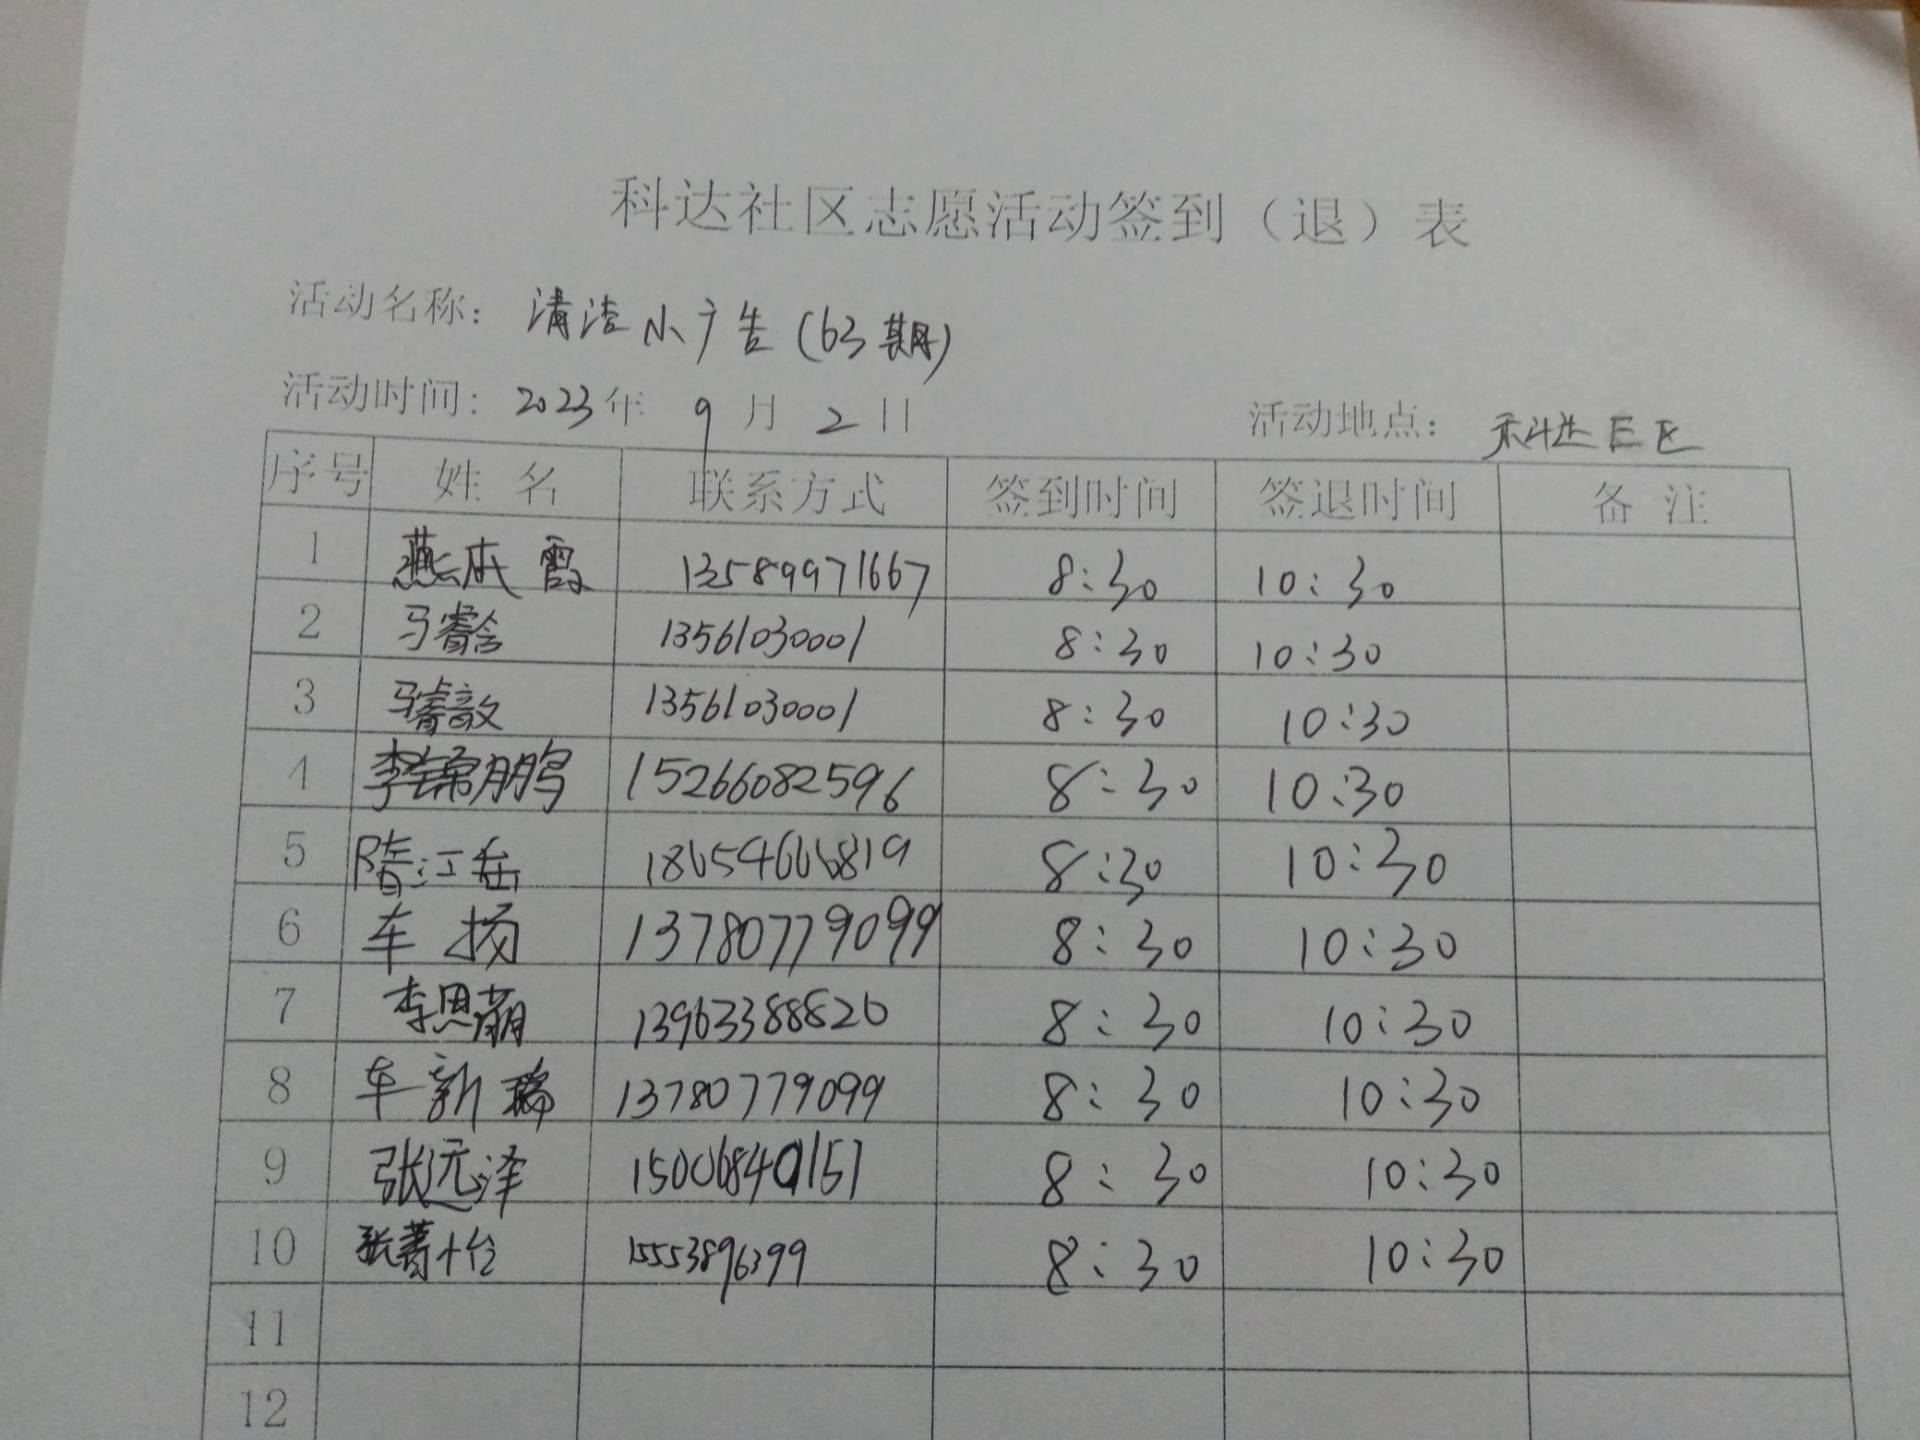 科达社区志愿活动签到（退）表
活动名称：清洁小广告(63期)
活动时间：2023年 9 月 2 日 活动地点：科达E区
序号 姓 名 联系方式 签到时间 签退时间 备 注
1 燕本霞 13589971667 8:30 10:30
2 马睿含 13561030001 8:30 10:30
3 马睿 13561030001 8:30 10:30
4 李锦鹏 15266082596 8:30 10:30
5 隋江岳 18654666819 8:30 10:30
6 车扬 13780779099 8:30 10:30
7 李思蒴 13963388820 8:30 10:30
8 车新瑞 13780779099 8:30 10:30
9 张远泽 15006840151 8:30 10:30
10 张 15553896399 8:30 10:30
11
12